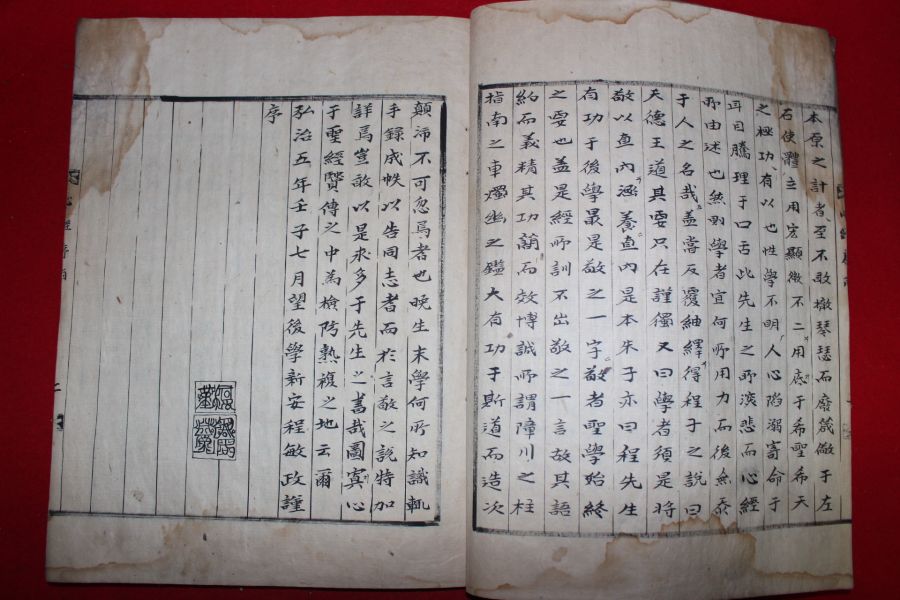 本原之計者至不敢撤琴瑟而廢箴儆于左
右使體立用宏顯微不二用底于希聖希天
之極功有以也性學不明人心陷溺寄命于
耳目騰理于口舌此先生之所深悲而心經
所由述也然則學者宜何所用力而後無忝
于人之名哉蓋嘗反覆紬繹得程子之說曰
天德王道其要只在謹獨又曰學者須是將
敬以直內涵養直內是本朱子亦曰程先生
有功于後學最是敬之一字敬者聖學始終
之要也蓋是經所訓不出敬之一言故其語
約而義精其功蕑而效博誠所謂障川之柱
指南之車燭幽之鑑大有功于斯道而造次
顛沛不可忽焉者也晚生末學何所知識輒
手錄成帙以告同志者而於言敬之說特加
詳焉豈敢以是求多于先生之書哉圖寘心
于聖經賢傳之中為檢防熟複之地云爾
弘治五年壬子七月望後學新安程敏政謹
序